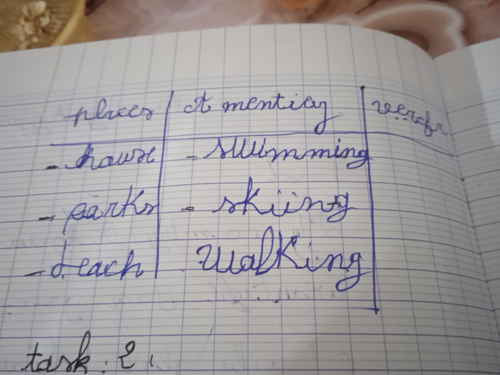 places Amenties verbs
- house - swimming
- parks - skiing
- beach Walking
task: 2